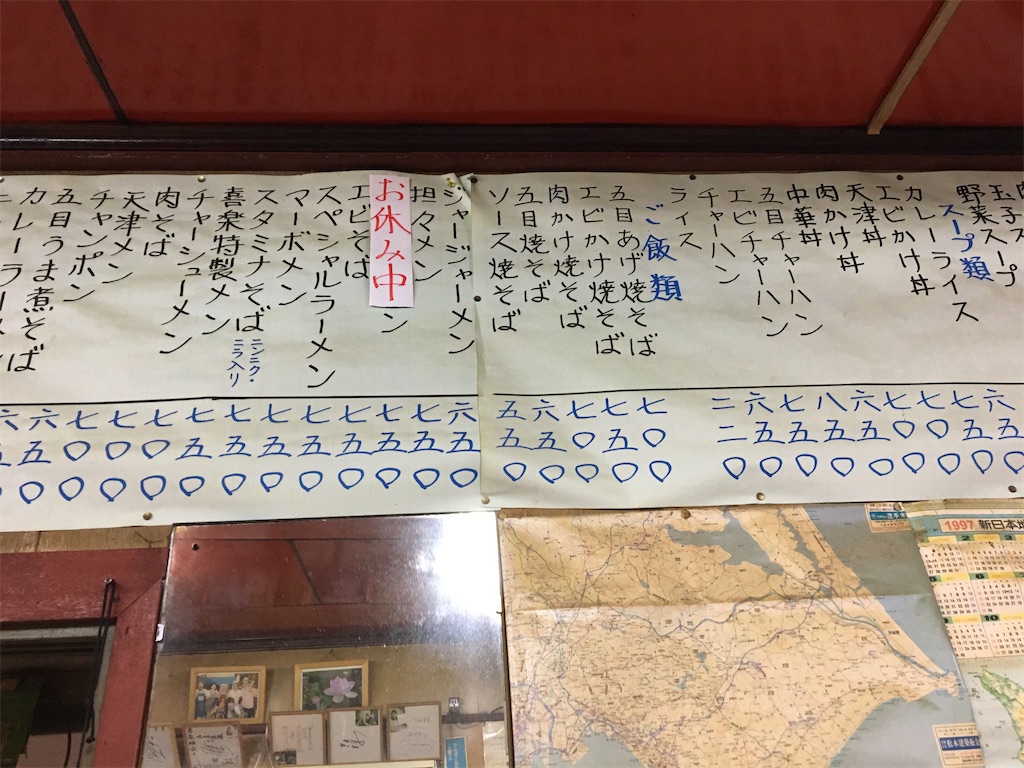 玉子スープ
野菜スープ
スープ類
カレーライス
エビかけ丼
天津丼
肉かけ丼
中華丼
五目チャーハン
エビチャーハン
チャーハン
ライス
ご飯類
五目あげ焼そば
エビかけ焼そば
肉かけ焼そば
五目焼そば
ソース焼そば
六五〇
七五〇
七〇〇
七〇〇
六五〇
八五〇
七五〇
六五〇
二二〇
七〇〇
七五〇
七〇〇
六五〇
五五〇
ジャージャーメン
担々メン
お休み中
ン
エビそば
スペシャルラーメン
マーボメン
スタミナそば
ニンニク・
ニラ入り
喜楽特製メン
チャーシューメン
肉そば
天津メン
チャンポン
五目うま煮そば
カレーラーメン
六五〇
七五〇
七五〇
七五〇
七五〇
七五〇
七五〇
七五〇
七五〇
七〇〇
七〇〇
七〇〇
六五〇
六五〇
1997 新日本地